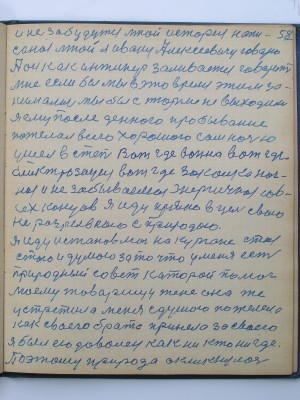 и не забудут мной история напи- 58
саной мной я ивану Алексеевичу говорю
А он как интинер заливается говорит
мне если бы мы в это время этим за-
нимались мы бы с тюрми не выходили
Я ему после денного пробывание
пожелал всего хорошого сам ночю
ушел в степ Вот где ванна вот где
електрозация вот где закалка
и не забываемая Энергичная
Я иду прямо в цел своего
не разрывного с природою.
Я иду установился на кургане стал
стою и думаю за то что у меня есть
природный совет каторая помог
моему товарищу жене она же
устретила меня я думою пожелено
как своего брата приняла за своего
я был ею доволен как никто нигде.
Поэтому природа окликнулась